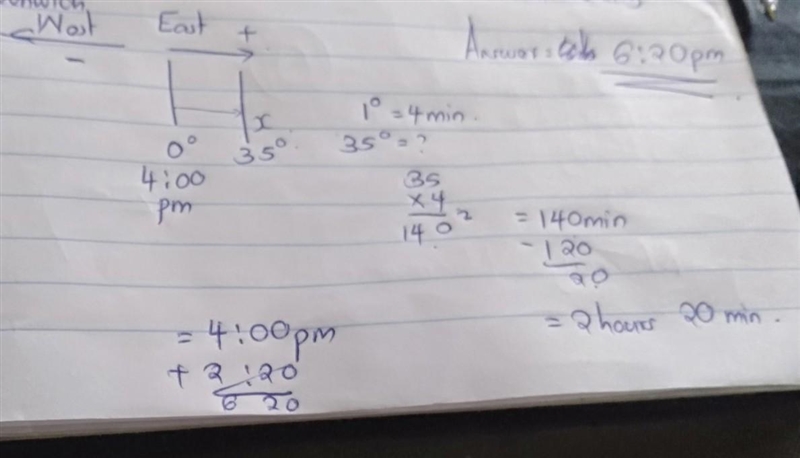 West East +
-
Answer = 6:20pm
x
1° = 4min.
0° 35°
35° = ?
4:00
pm
35
×4
140
= 140min
- 120
20
= 2hours 20 min.
= 4:00pm
+ 2:20
6 20